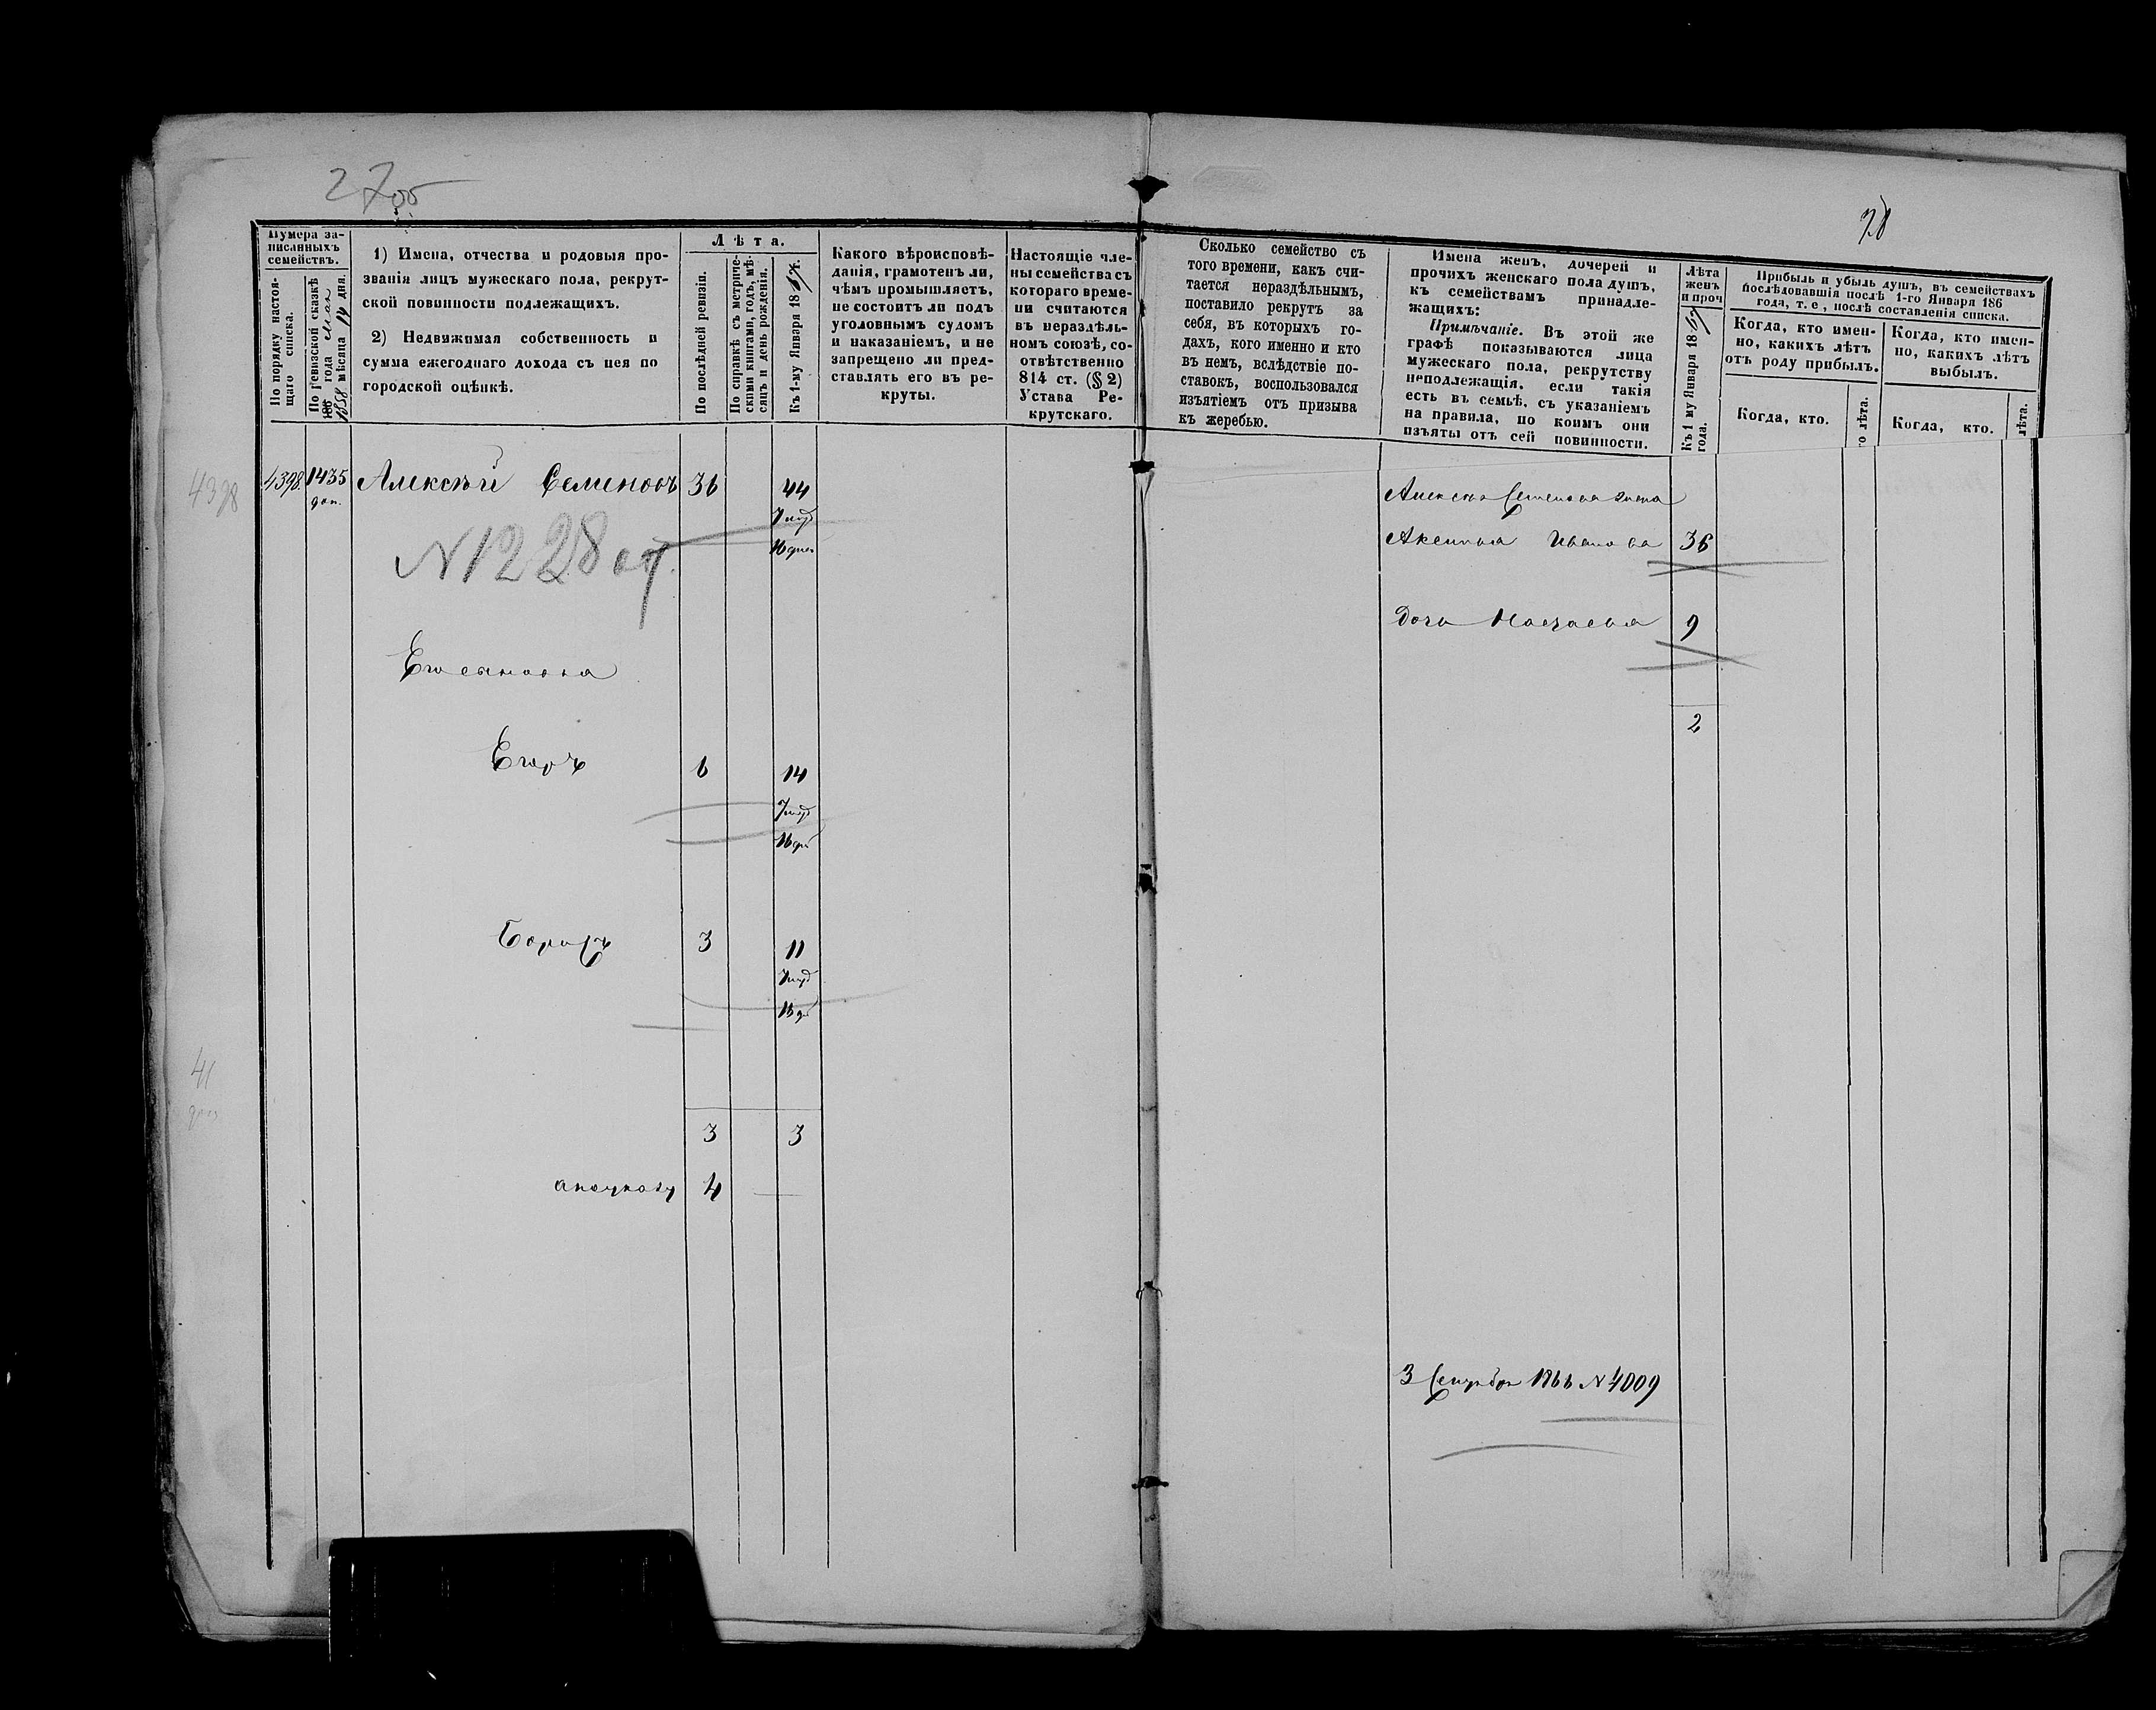 27об
78
Нумера за-
писанныхъ
семействъ.
По порядку настоя-
щаго списка.
По Ревизской сказкѣ
186 1858 года Мая
мѣсяца 14 дня.
1) Имена, отчества и родовыя про-
званія лицъ мужескаго пола, рекрут-
ской повинности подлежащихъ.
2) Недвижимая собственность и
сумма ежегоднаго дохода съ нея по
городской оцѣнкѣ.
Лѣта.
По послѣдней ревизіи.
По справкѣ съ метриче-
скими книгами, годъ, мѣ-
сяцъ и день рожденія.
Къ 1-му Января 1867 г.
Какого вѣроисповѣ-
данія, грамотенъ ли,
чѣмъ промышляетъ,
не состоитъ ли подъ
уголовнымъ судомъ
и наказаніемъ, и не
запрещено ли пред-
ставлять его въ ре-
круты.
Настоящіе чле-
ны семейства съ
котораго време-
ни считаются
въ нераздѣль-
номъ союзѣ, со-
отвѣтственно
814 ст. (§ 2)
Устава Ре-
крутскаго.
Сколько семейство съ
того времени, какъ счи-
тается нераздѣльнымъ,
поставило рекрутъ за
себя, въ которыхъ го-
дахъ, кого именно и кто
въ немъ, вслѣдствіе по-
ставокъ, воспользовался
изъятіемъ отъ призыва
къ жеребью.
Имена женъ, дочерей и
прочихъ женскаго пола душъ,
къ семействамъ принадле-
жащихъ:
Примѣчаніе. Въ этой же
графѣ показываются лица
мужескаго пола, рекрутству
неподлежащія, если такія
есть въ семьѣ, съ указаніемъ
на правила, по коимъ они
изъяты отъ сей повинности.
Лѣта
женъ
и проч
Къ 1 му Января 1867
года.
Прибыль и убыль душъ, въ семействахъ
послѣдовавшія послѣ 1-го Января 186
года, т. е., послѣ составленія списка.
Когда, кто имен-
но, какихъ лѣтъ
отъ роду прибылъ.
Когда, кто имен-
но, какихъ лѣтъ
выбылъ.
Когда, кто.
лѣта.
Когда, кто.
лѣта.
4398
4398. 1435 Алексѣй Семеновъ 36 44
доп.
7 мѣс
16 дней
N 1228
Его сыновья
Егоръ 6 14
7 мѣс
16 дн
Борисъ 3 11
7 мѣс
16 дн
41
3 3
а по укозу 4 —
Алексѣя Семенова жена
Аксинья Иванова 36
Дочь Настасья 9
2
3 Сентября 1866 N 4009